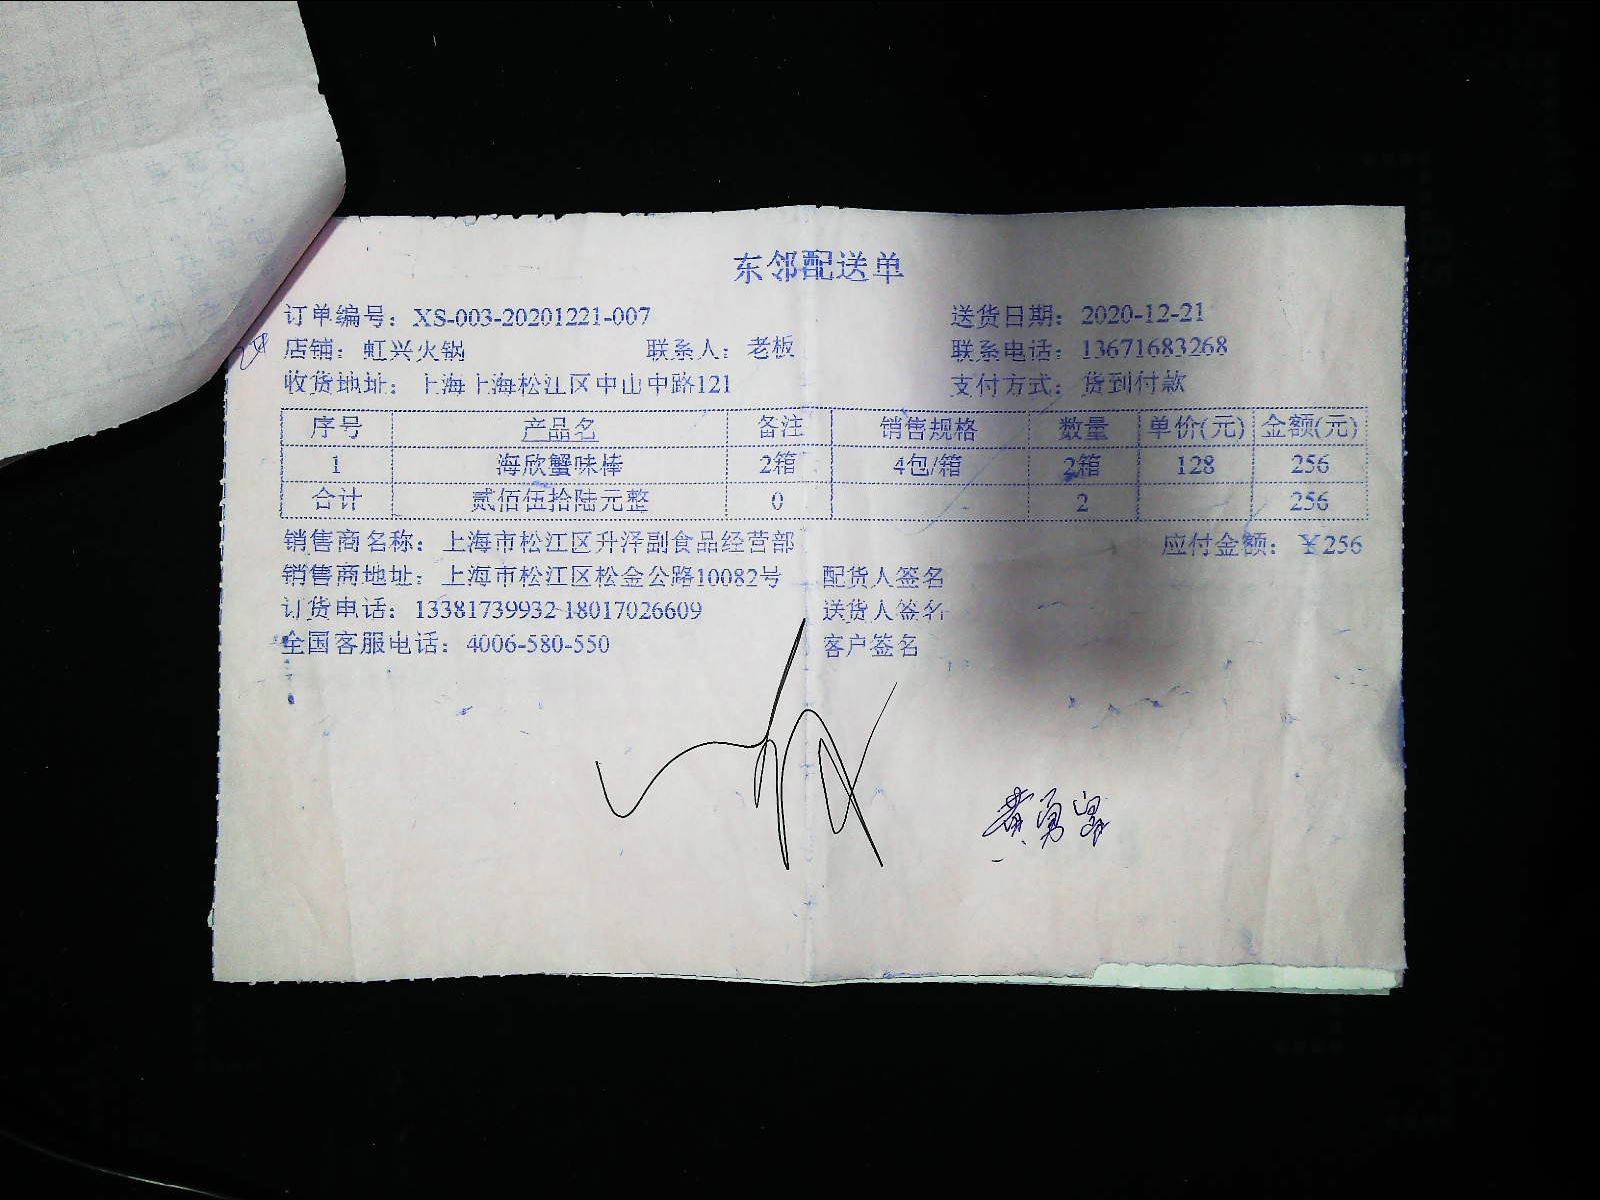 东邻配送单
订单编号：XS-003-20201221-007 送货日期：2020-12-21
店铺：虹兴火锅 联系人：老板 联系电话：13671683268
收货地址：上海上海松江区中山中路121 支付方式：货到付款
序号 产品名 备注 销售规格 数量 单价(元) 金额(元)
1 海欣蟹味棒 2箱 4包/箱 2箱 128 256
合计 贰佰伍拾陆元整 0 2 256
销售商名称：上海市松江区升泽副食品经营部 应付金额：￥256
销售商地址：上海市松江区松金公路10082号 配货人签名
订货电话：13381739932 18017026609 送货人签名
全国客服电话：4006-580-550 客户签名